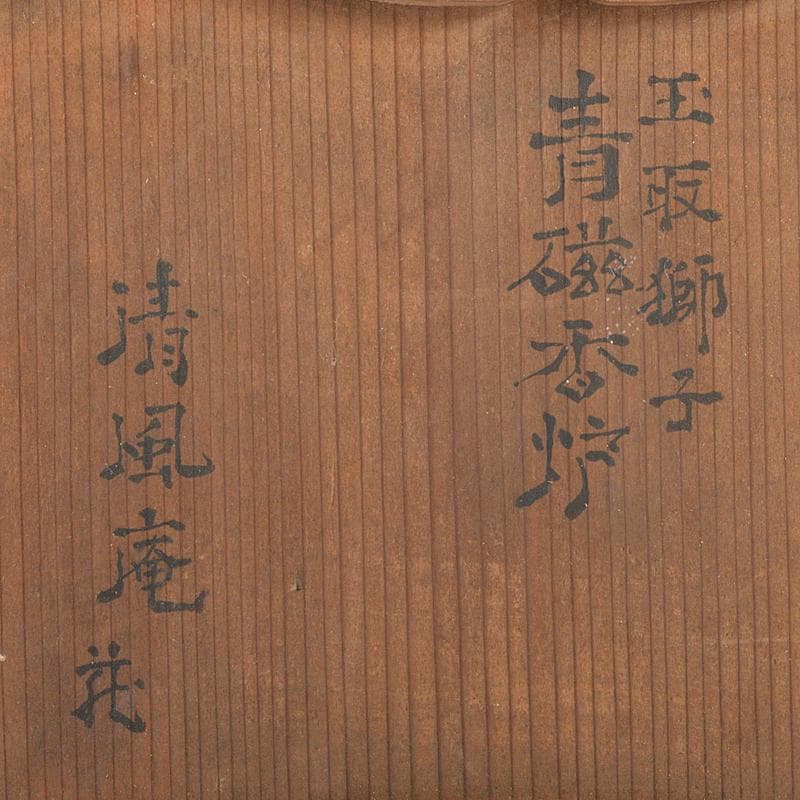 玉取獅子
青磁香炉
清風庵蔵